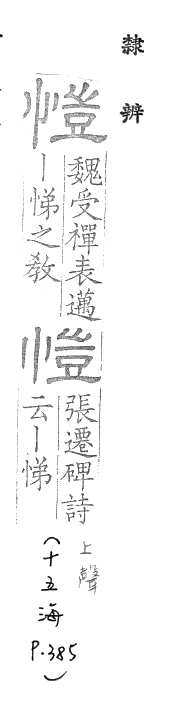 隸辨
愷
魏受禪表邁
丨悌之教
愷
張遷碑詩
云丨悌
上聲
(十五海
P.385)